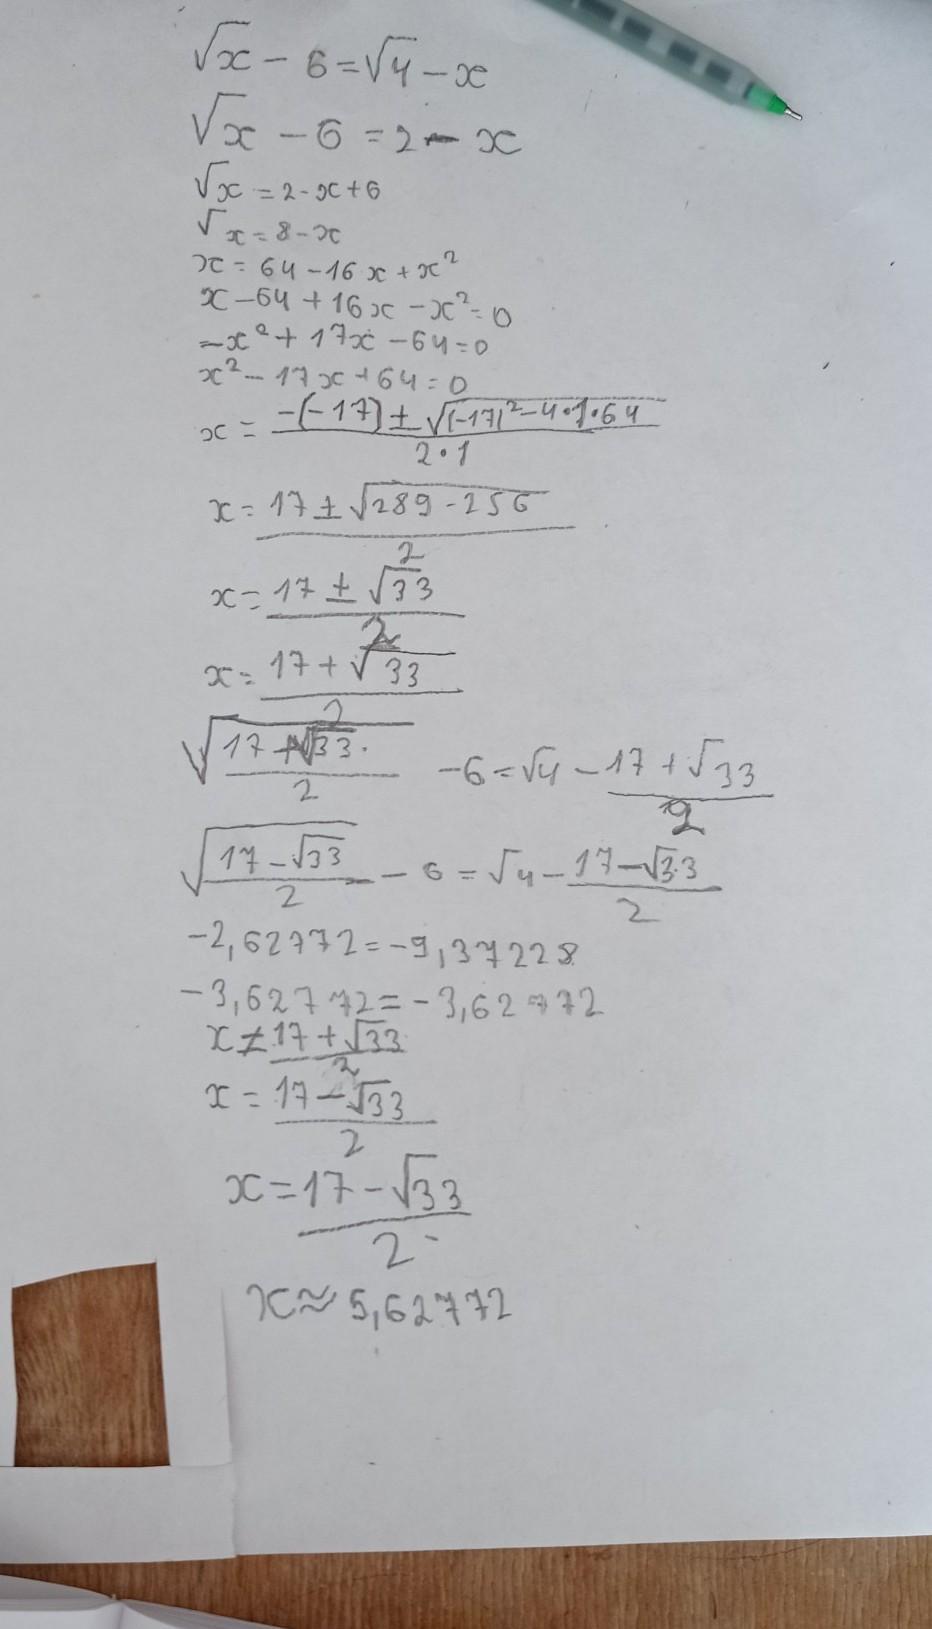 √x - 6 = √4 - x
√x - 6 = 2 - x
√x = 2 - x + 6
√x = 8 - x
x = 64 - 16x + x²
x - 64 + 16x - x² = 0
-x² + 17x - 64 = 0
x² - 17x + 64 = 0
x = -(-17) ± √(-17)² - 4•1•64
2•1
x = 17 ± √289 - 256
2
x = 17 ± √33
2
x = 17 + √33
2
√17 + √33 - 6 = √4 - 17 + √33
2 2
√17 - √33 - 6 = √4 - 17 - √33
2 2
-2,62772 = -9,37228
-3,62772 = -3,62772
x ≠ 17 + √33
2
x = 17 - √33
2
x = 17 - √33
2
x ≈ 5,62772